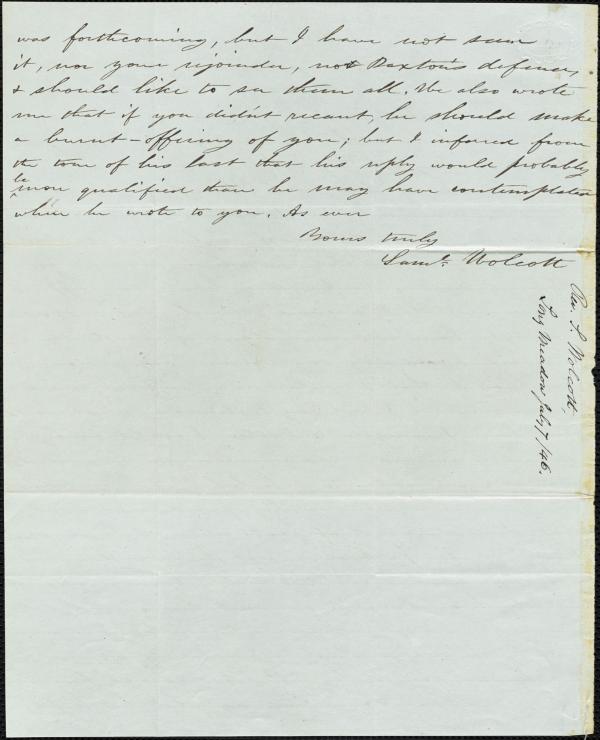 was forthcoming, but I have not seen
it, nor your rejoinder, nor Paxton's defence,
& should like to see them all. He also wrote
me that if you didn't recant, he should make
a burnt-offering of you; but I inferred from
the tone of his last that his reply would probably
be
more qualified than he may have contemplated
when he wrote to you. As ever
Yours truly
Saml. Wolcott
Rev. S. Wolcott,
Long Meadow July 7/46.